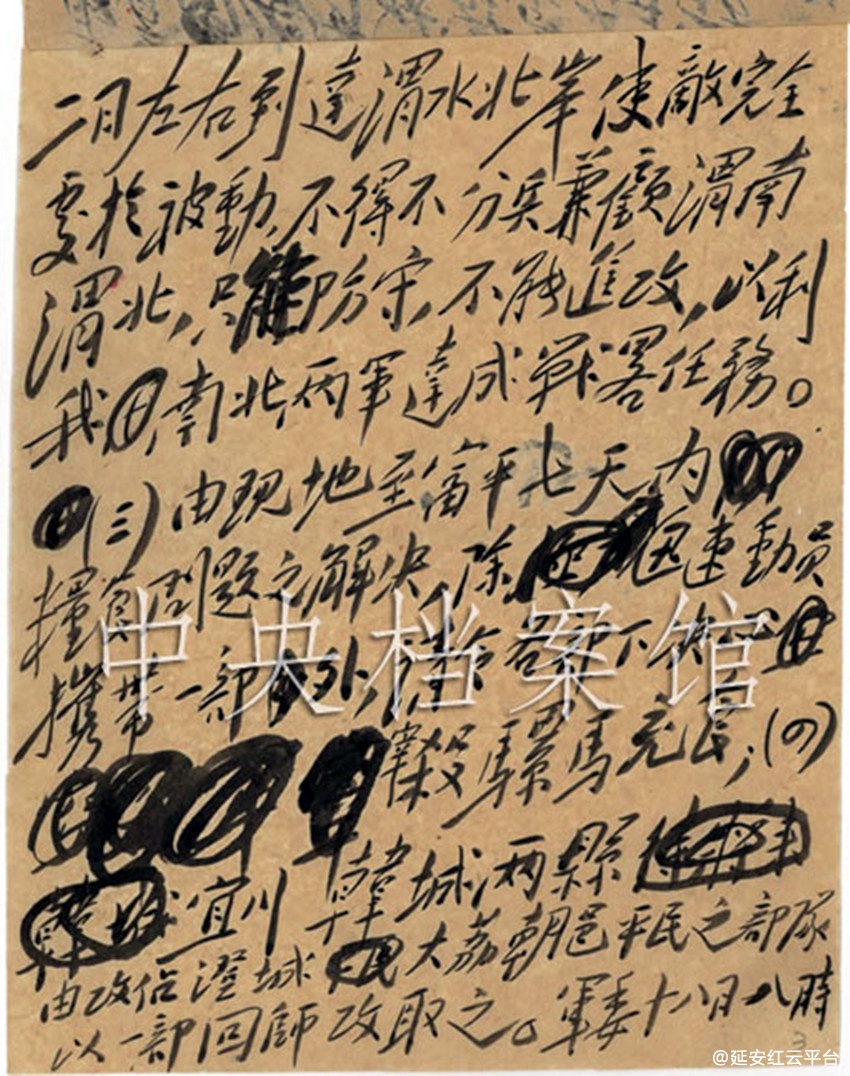 二月左右到達渭水北岸使敵完全
處於被動，不得不分兵兼顧渭南
渭北，只能防守，不能進攻，以利
我南北兩軍達成戰畧任務。
(三)由現地至富平七天內
糧食問題之解決，除迅速動員
攜帶一部外，下
宰殺騾馬充食；(四)
宜川韓城兩縣
由攻佔澄城大荔朝邑平民之部隊
以一部回師攻取之。軍委十八日八時
3
中央档案馆
@延安红云平台